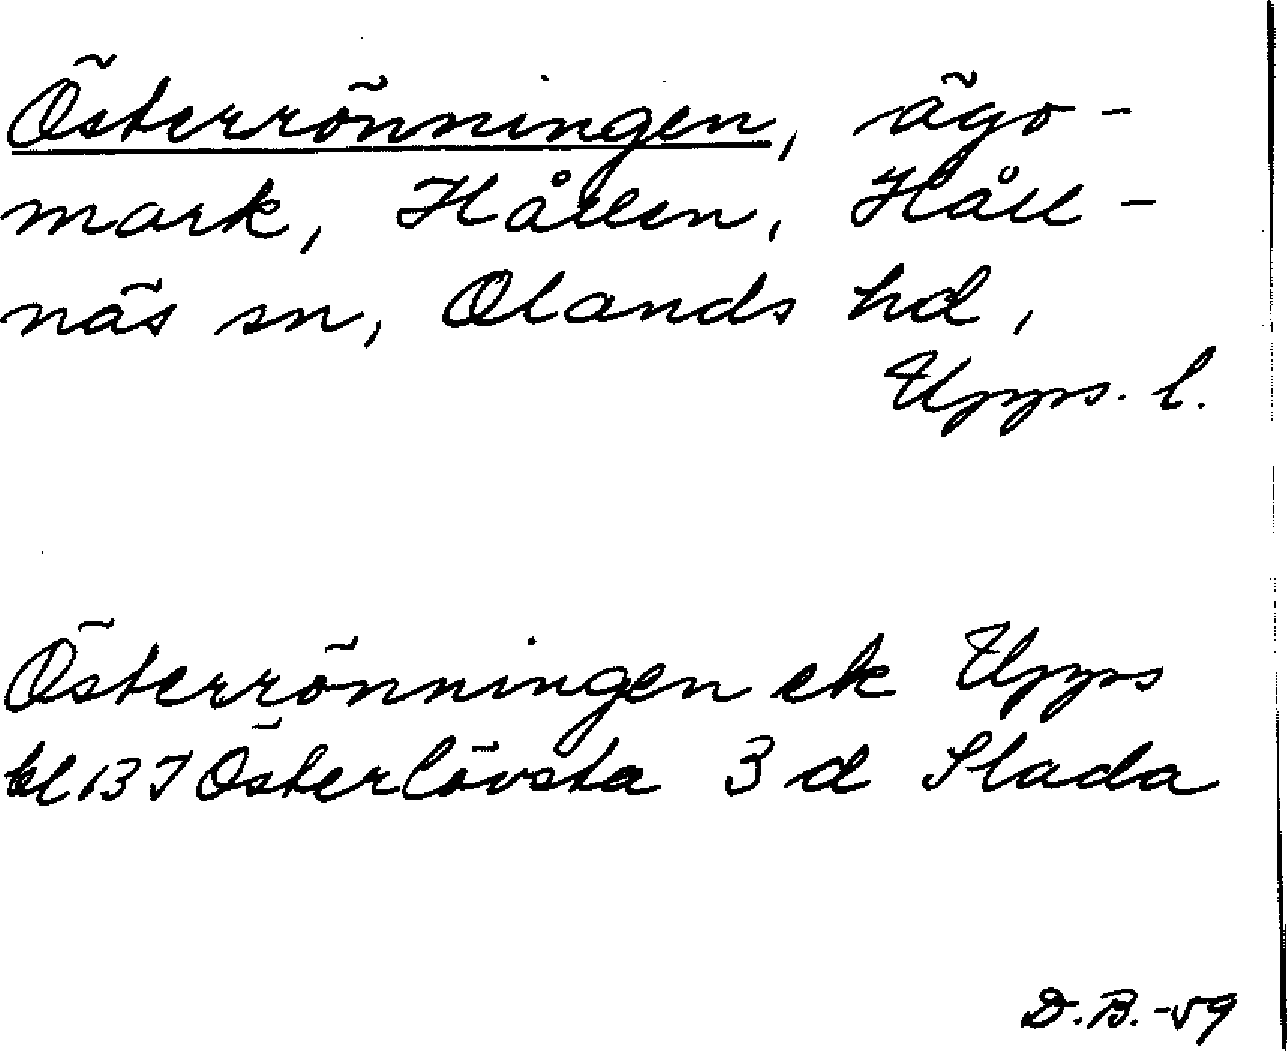 Österrönningen, ägo-
mark, Hållen, Håll-
näs sn, Olands hd,
Upps. l.
Österrönningen ek Upps
bl 13 I Österlövsta 3 d Slada
D.B.-59